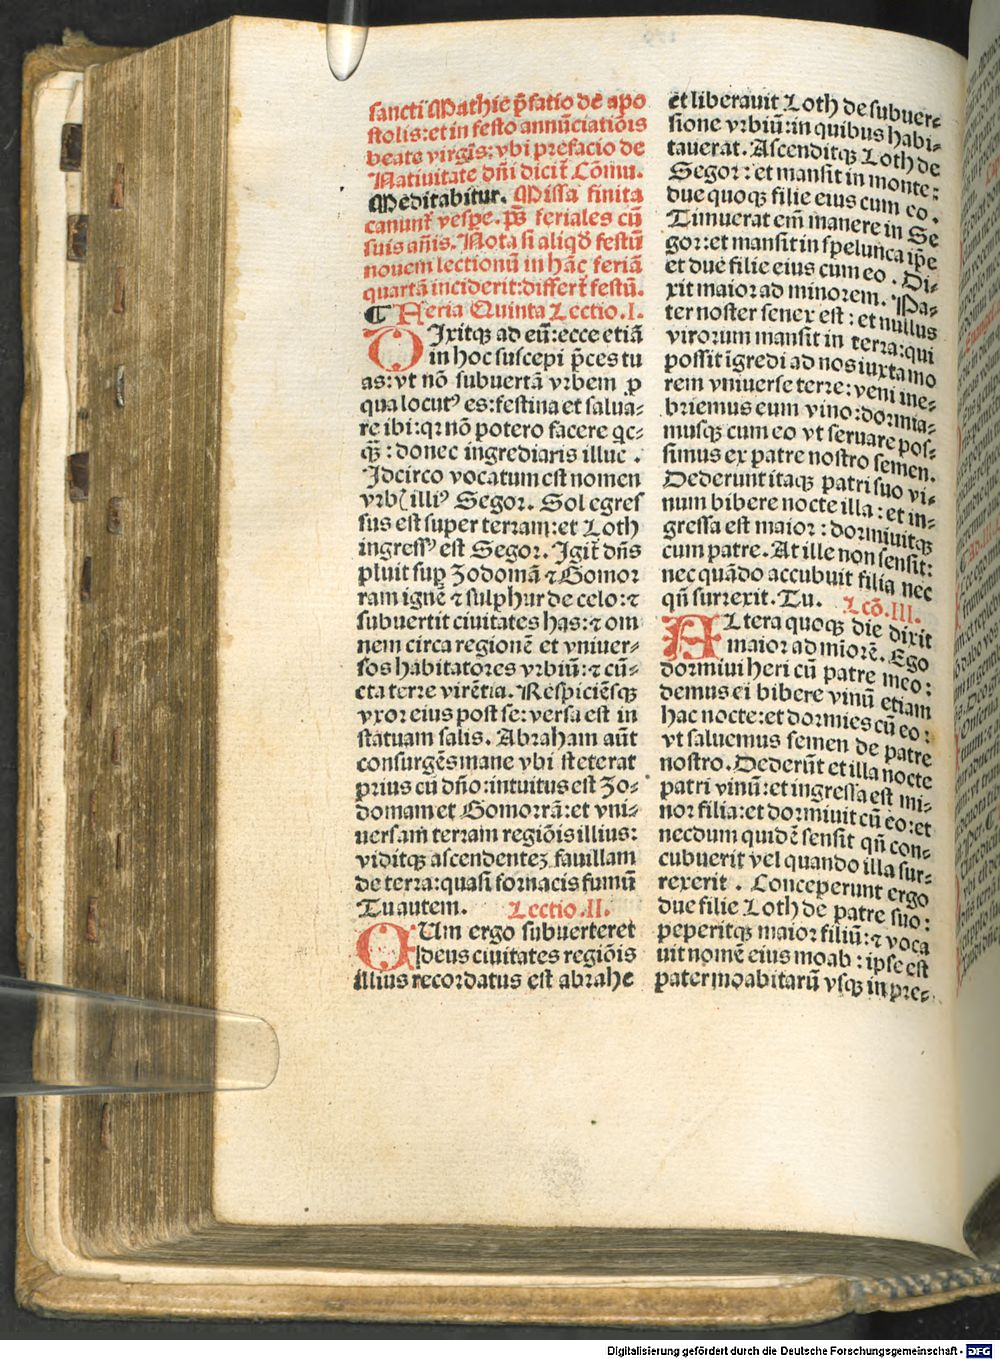 sancti Mathie p̄fatio de apo
stolis: et in festo annūciatiōis
beate virgīs: vbi prefacio de
Natiuitate dn̄i dicit᷑ Cōmu.
Meditabitur. Missa finita
canunt᷑ vespe. p̄s feriales cū
suis an̄is. Nota si aliqd̄ festū
nouem lectionū in hāc feriā
quartā inciderit: differt᷑ festū.
¶ Feria Quinta Lectio .I.
DIxitqꝫ ad eū: ecce etiā
in hoc suscepi p̄ces tu
as: vt nō subuertā vrbem ꝓ
qua locutꝰ es: festina et salua⸗
re ibi: qꝛ nō potero facere qc⸗
qꝫ̄: donec ingrediaris illuc.
Idcirco vocatum est nomen
vrbꝭ illiꝰ Segor. Sol egres
sus est super terram: et Loth
ingressꝰ est Segor. Igit᷑ dn̄s
pluit suꝑ Zodomā ⁊ Gomor
ram ignē ⁊ sulphur de celo: ⁊
subuertit ciuitates has: ⁊ om
nem circa regionē et vniuer⸗
sos habitatores vrbiū: ⁊ cū⸗
cta terre virētia. Respiciēsqꝫ
vxor eius post se: versa est in
statuam salis. Abraham aūt
consurgēs mane vbi steterat
prius cū dn̄o: intuitus est Zo⸗
domam et Gomorrā: et vni⸗
uersam terram regiōis illius:
viditqꝫ ascendentez fauillam
de terra: quasi fornacis fumū
Tu autem. Lectio .II.
CUm ergo subuerteret
deus ciuitates regiōis
illius recordatus est abrahe
et liberauit Loth de subuer⸗
sione vrbiū: in quibus habi⸗
tauerat. Ascenditqꝫ Loth de
Segor: et mansit in monte:
due quoqꝫ filie eius cum eo.
Timuerat em̄ manere in Se
gor: et mansit in spelunca ip̄e
et due filie eius cum eo. Di⸗
xit maior ad minorem. Pa⸗
ter noster senex est: et nullus
virorum mansit in terra: qui
possit īgredi ad nos iuxta mo
rem vniuerse terre: veni ine⸗
briemus eum vino: dormia⸗
musqꝫ cum eo vt seruare pos⸗
simus ex patre nostro semen.
Dederunt itaqꝫ patri suo vi⸗
num bibere nocte illa: et in⸗
gressa est maior: dormiuitqꝫ
cum patre. At ille non sensit:
nec quādo accubuit filia nec
qn̄ surrexit. Tu. Lcō. III.
ALtera quoqꝫ die dixit
maior ad mīorē. Ego
dormiui heri cū patre meo:
demus ei bibere vinū etiam
hac nocte: et dormies cū eo:
vt saluemus semen de patre
nostro. Dederūt et illa nocte
patri vinū: et ingressa est mi⸗
nor filia: et dormiuit cū eo: et
necdum quidē sensit qn̄ con⸗
cubuerit vel quando illa sur⸗
rexerit. Conceperunt ergo
due filie Loth de patre suo:
peperitqꝫ maior filiū: ⁊ voca
uit nomē eius moab: ipse est
pater moabitarū vsqꝫ in pre⸗
Digitalisierung gefördert durch die Deutsche Forschungsgemeinschaft - DFG